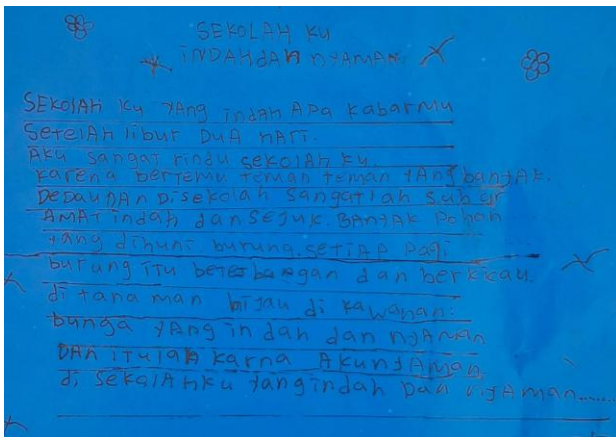 SEKOLAH KU
INDAH dAN nYAMAN.
SEKOlAH Ku YAng indah APa KabarMu
SeteLAH libur DuA HARi.
AKu SAngat rindu seKolAH Ku.
Karena bertemu teman teman YAng banYAK.
DEDAUNAN DiseKolah Sangatlah Subur
AMAT indah dan SEJuK. BANYAK Pohon
Yang dihuni burung. SETiAP PAgi
burung iTu beterbangan dan berKicau.
di tana man hijau di Kawanan:
bunga YAng in dah dan nYAMAN
DAN iTulah Karna AKu nYAMAN
di SEKOlAHKu Yang indah DAN nYAMAN......